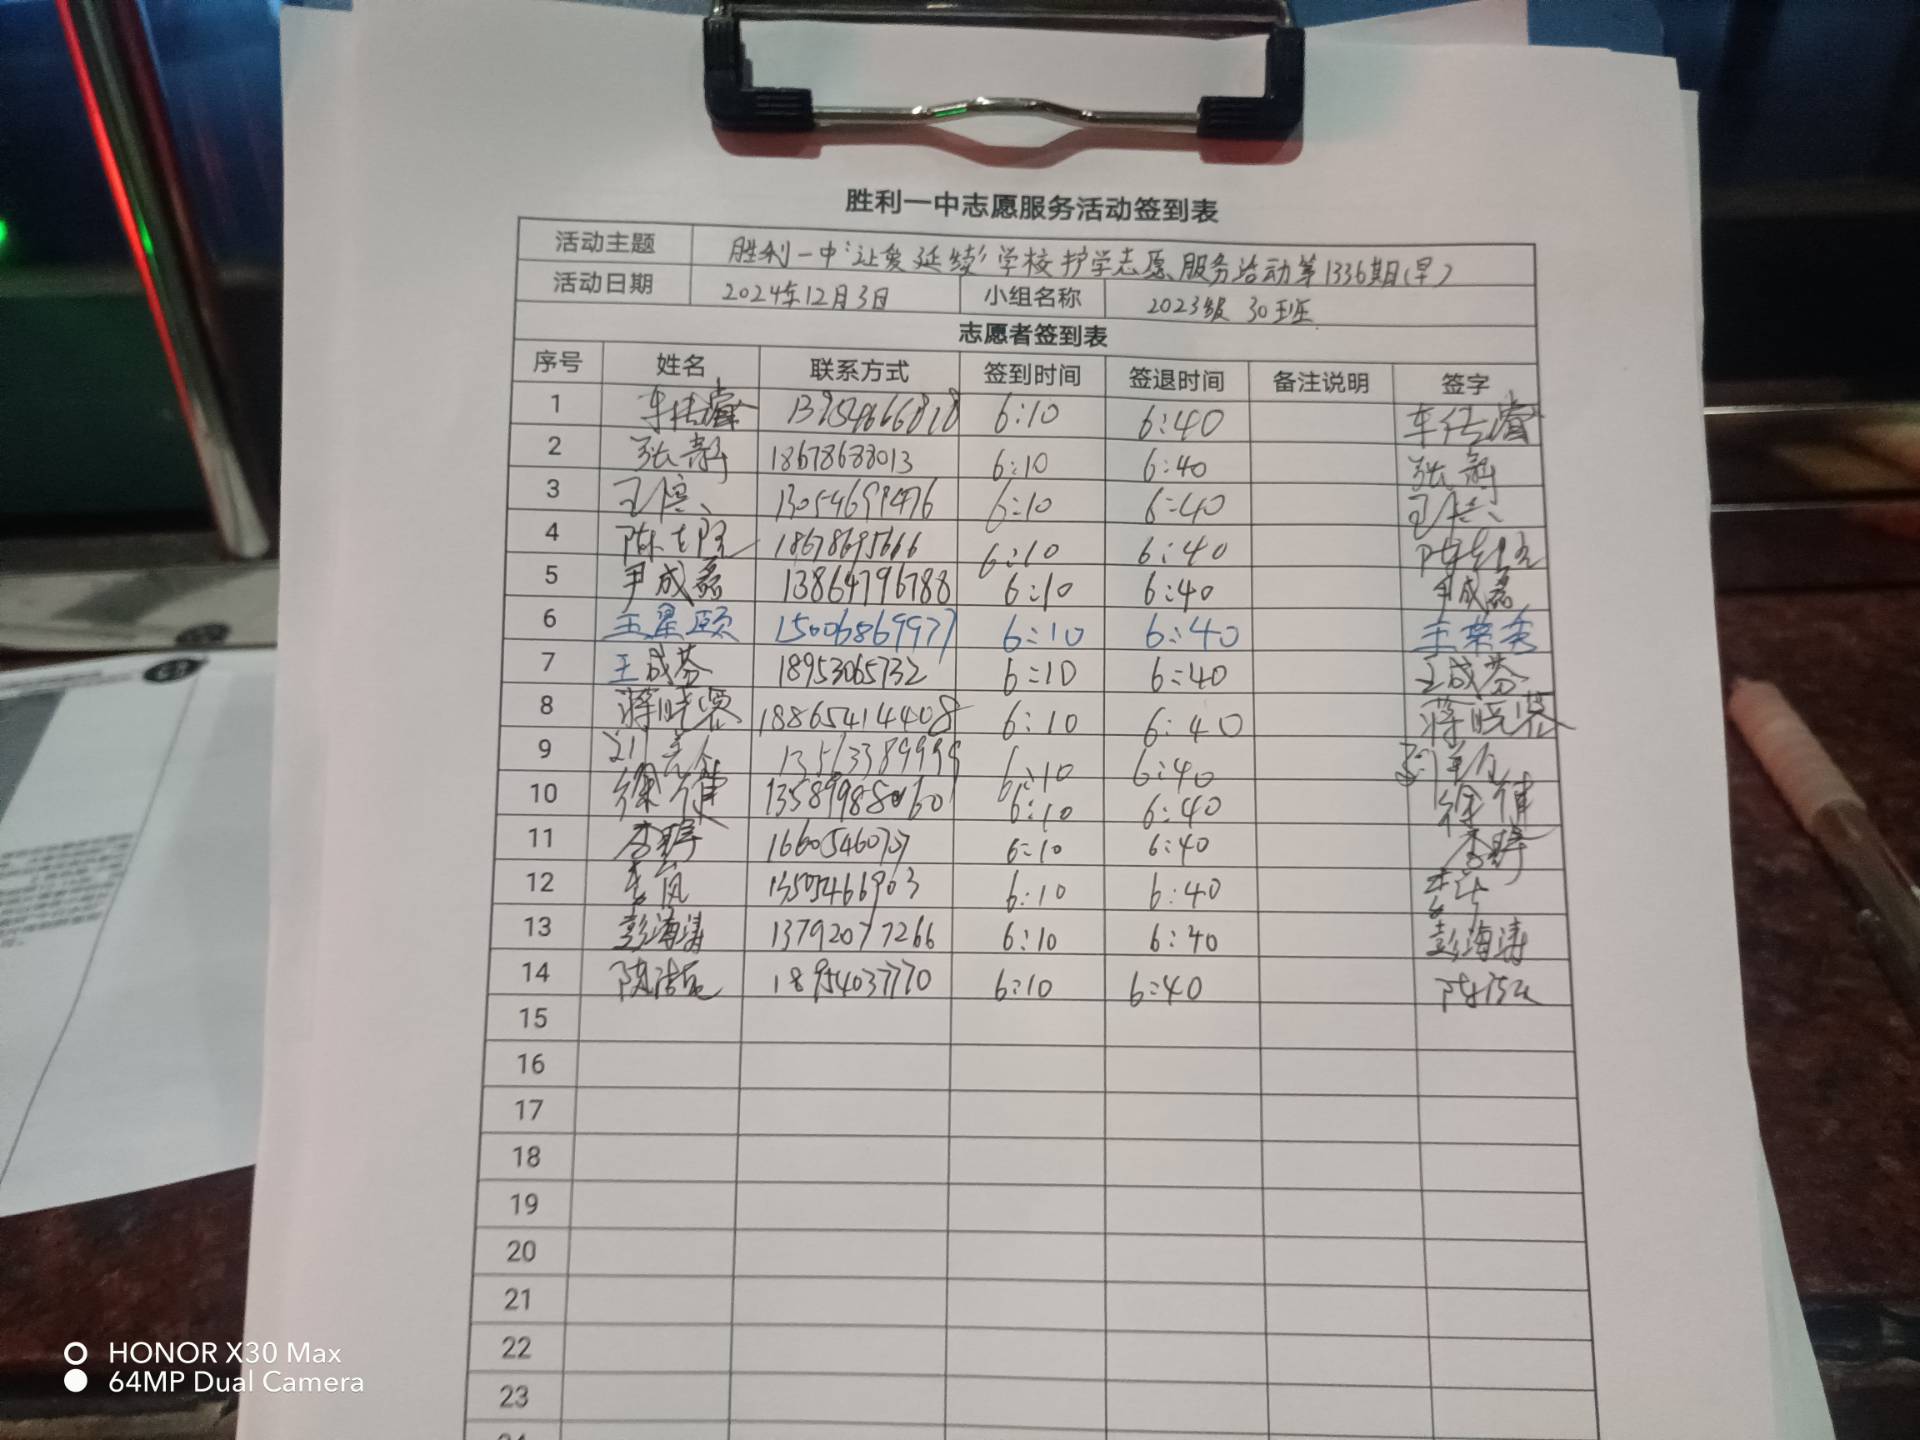 胜利一中志愿服务活动签到表
活动主题 胜利一中"让爱延续"学校护学志愿服务活动第1336期(早)
活动日期 2024年12月3日 小组名称 2023级 30班
志愿者签到表
序号 姓名 联系方式 签到时间 签退时间 备注说明 签字
1 6:10 6:40
2 张 18678688013 6:10 6:40 张
3 13054699476 6:10 6:40
4 陈 18678695666 6:10 6:40
5 尹成磊 13864796788 6:10 6:40 尹成磊
6 王星颐 15006869977 6:10 6:40 王
7 王成芬 18953065732 6:10 6:40 王成芬
8 蒋晓蓉 18865414408 6:10 6:40 蒋晓蓉
9 刘 13513389999 6:10 6:40
10 徐伟 6:10 6:40 徐伟
11 李 16605460737 6:10 6:40 李
12 李 6:10 6:40 李
13 彭海涛 13792077266 6:10 6:40 彭海涛
14 陈 18954037770 6:10 6:40 陈
15
16
17
18
19
20
21
22
23
HONOR X30 Max
64MP Dual Camera